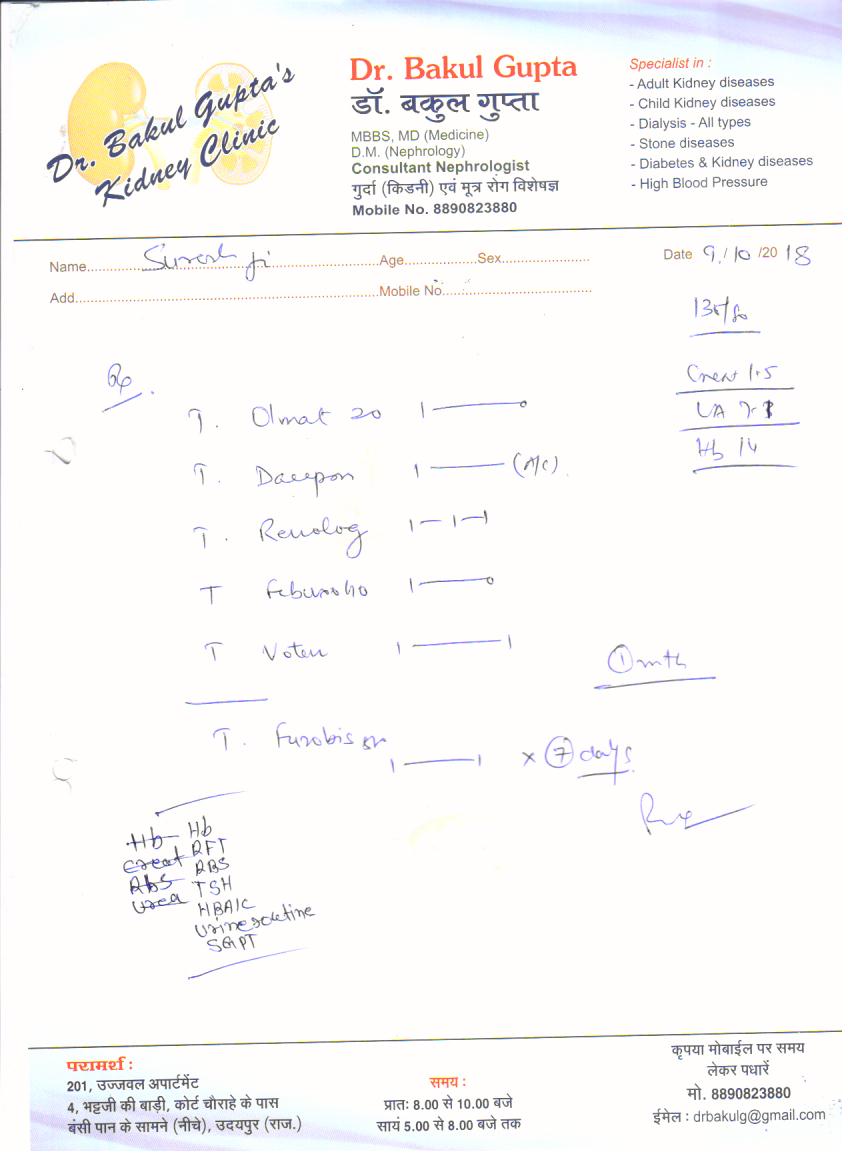 Dr. Bakul Gupta's
Kidney Clinic
Dr. Bakul Gupta
डॉ. बकुल गुप्ता
MBBS, MD (Medicine)
D.M. (Nephrology)
Consultant Nephrologist
गुर्दा (किडनी) एवं मूत्र रोग विशेषज्ञ
Mobile No. 8890823880
Specialist in :
- Adult Kidney diseases
- Child Kidney diseases
- Dialysis - All types
- Stone diseases
- Diabetes & Kidney diseases
- High Blood Pressure
Name Suresh ji Age Sex Date 9/10/2018
Add Mobile No.
Creat 1.5
UA
Hb 14
Rx
T. Olmat 20 1——0
T. 1—— (A/C)
T. Renolog 1—1—1
T 1——0
T 1——1
① mth
T. 1——1 x ⑦ days
Hb Hb
Creat RFT
RBS RBS
Urea TSH
HBA1C
Urine routine
SGPT
परामर्श :
201, उज्जवल अपार्टमेंट
4, भट्टजी की बाड़ी, कोर्ट चौराहे के पास
बंसी पान के सामने (नीचे), उदयपुर (राज.)
समय :
प्रातः 8.00 से 10.00 बजे
सायं 5.00 से 8.00 बजे तक
कृपया मोबाईल पर समय
लेकर पधारें
मो. 8890823880
ईमेल : drbakulg@gmail.com